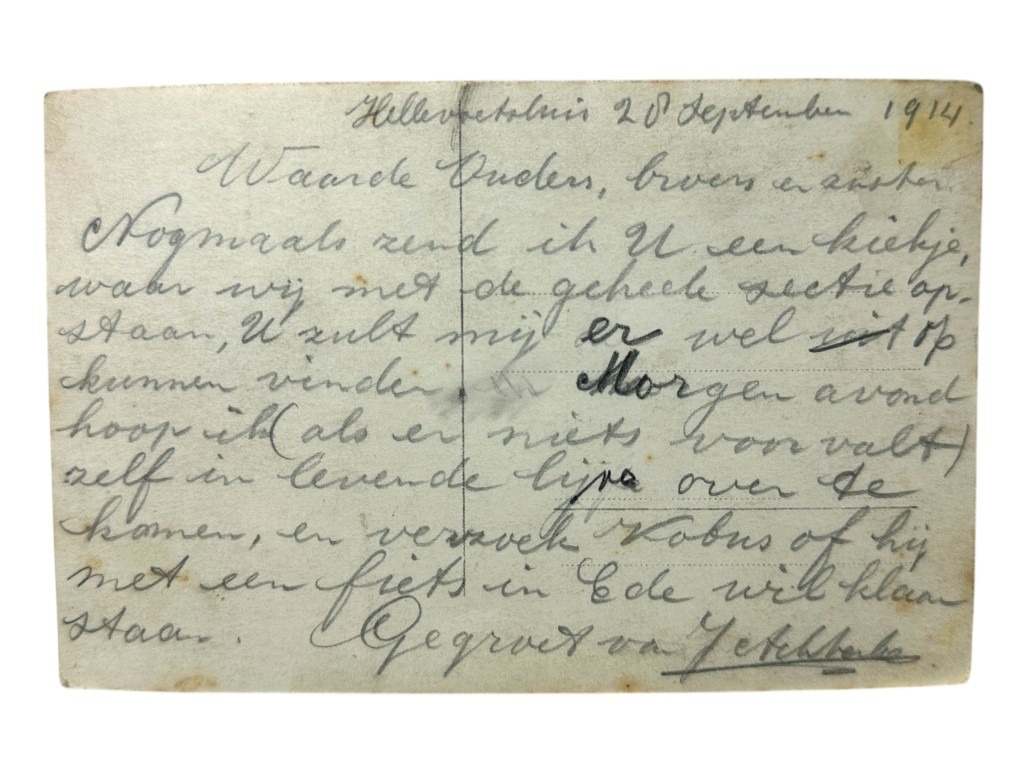 Hellevoetsluis 28 September 1914.
Waarde Ouders, broers en zuster
Nogmaals zend ik U een kiekje,
waar wij met de geheele sectie op-
staan, U zult mij er wel uit op
kunnen vinden. Morgen avond
hoop ik (als er niets voorvalt)
zelf in levende lijve over te
komen, en verzoek Kobus of hij
met een fiets in Ede wil klaar
staan. Gegroet van J